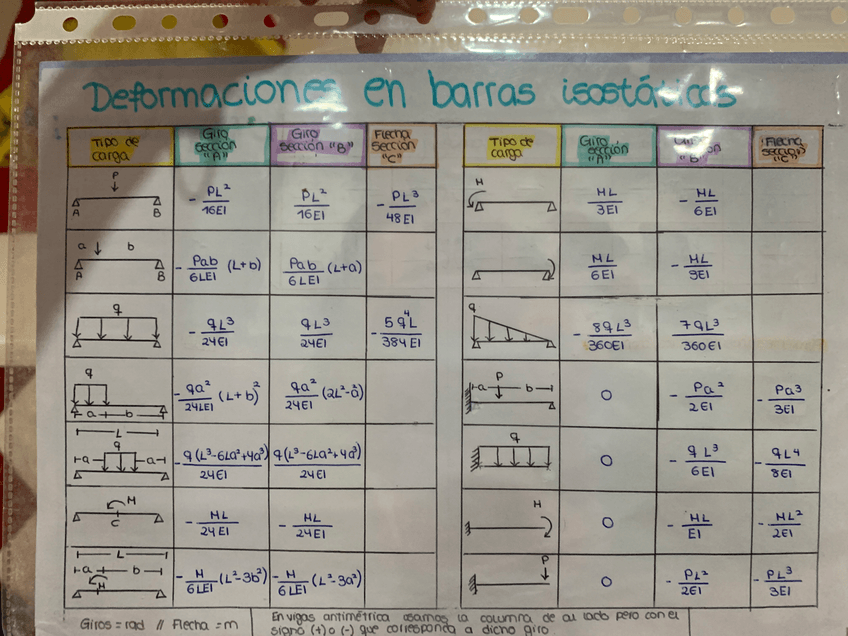 Deformaciones en barras isostáticas
Tipo de carga | Giro sección "A" | Giro sección "B" | Flecha sección "C"
P A B | - PL²/16EI | PL²/16EI | - PL³/48EI
a b A B | - Pab/6LEI (L+b) | Pab/6LEI (L+a)
q | - qL³/24EI | qL³/24EI | - 5qL⁴/384EI
q a b | - qa²/24LEI (L+b)² | qa²/24EI (2L²-a²)
L a q a | - q(L³-6La²+4a³)/24EI | q(L³-6La²+4a³)/24EI
M C | - ML/24EI | - ML/24EI
L a b M | - M/6LEI (L²-3b²) | - M/6LEI (L²-3a²)
Tipo de carga | Giro sección "A" | "B" | Flecha sección "C"
M | ML/3EI | - ML/6EI
ML/6EI | - ML/3EI
q | - 8qL³/360EI | 7qL³/360EI
P a b | 0 | - Pa²/2EI | - Pa³/3EI
q | 0 | - qL³/6EI | - qL⁴/8EI
M | 0 | - ML/EI | - ML²/2EI
P | 0 | - PL²/2EI | - PL³/3EI
Giros = rad // Flecha = m
En vigas antimétrica usamos la columna de au lado pero con el
signo (+) o (-) que corresponda a dicho giro